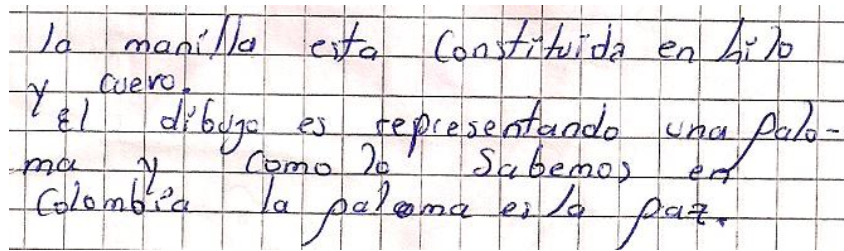 la manilla esta Constituida en hilo
y cuero.
y el dibujo es representando una palo-
ma y como lo Sabemos en
Colombia la paloma es la paz.